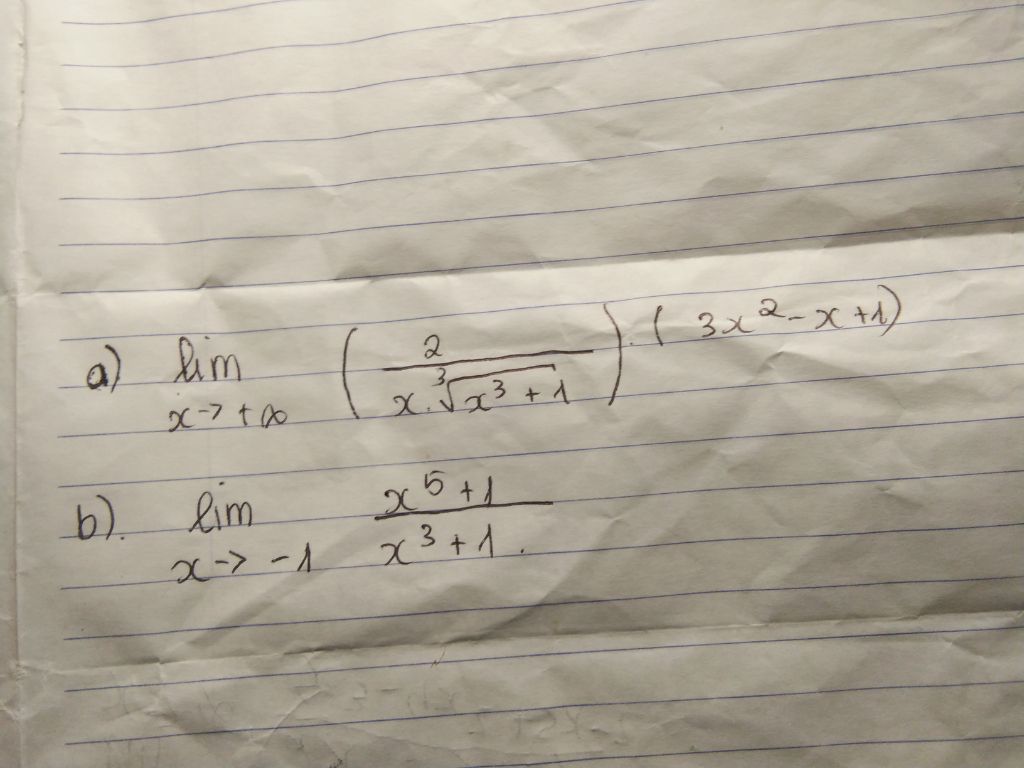 a) lim x→+∞ (2 / (x.∛(x³+1))).(3x²-x+1)
b). lim x→-1 (x⁵+1)/(x³+1).